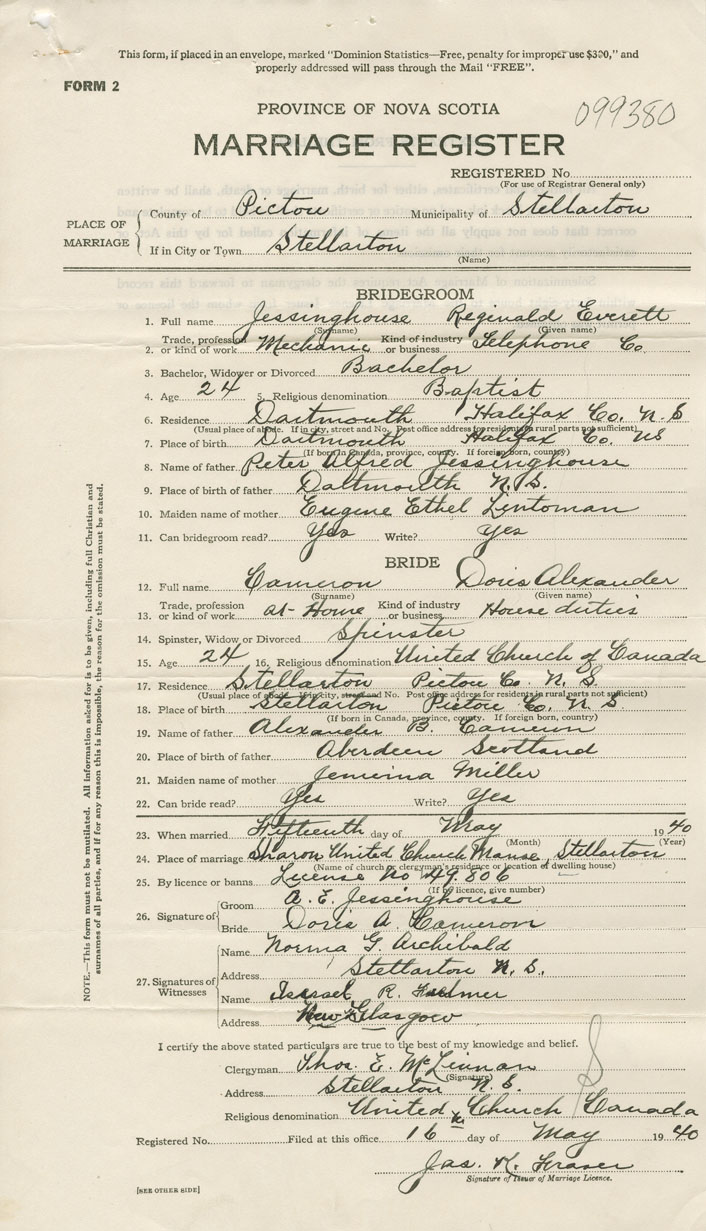 This form, if placed in an envelope, marked "Dominion Statistics—Free, penalty for improper use $300," and
properly addressed will pass through the Mail "FREE".
FORM 2
PROVINCE OF NOVA SCOTIA
099380
MARRIAGE REGISTER
REGISTERED No.
(For use of Registrar General only)
PLACE OF MARRIAGE
County of Pictou Municipality of Stellarton
If in City or Town Stellarton
(Name)
BRIDEGROOM
1. Full name Jessinghouse Reginald Everett
(Surname) (Given name)
2. Trade, profession or kind of work Mechanic Kind of industry or business Telephone Co.
3. Bachelor, Widower or Divorced Bachelor
4. Age 24 5. Religious denomination Baptist
6. Residence Dartmouth Halifax Co. N.S
(Usual place of abode. If in city, street and No. Post office address for residents in rural parts not sufficient)
7. Place of birth Dartmouth Halifax Co. NS
(If born in Canada, province, county. If foreign born, country)
8. Name of father Peter Alfred Jessinghouse
9. Place of birth of father Dartmouth N.S.
10. Maiden name of mother Eugene Ethel
11. Can bridegroom read? Yes Write? Yes
BRIDE
12. Full name Cameron Doris Alexander
(Surname) (Given name)
13. Trade, profession or kind of work at-Home Kind of industry or business House duties
14. Spinster, Widow or Divorced Spinster
15. Age 24 16. Religious denomination United Church of Canada
17. Residence Stellarton Pictou Co. N. S
(Usual place of abode. If in city, street and No. Post office address for residents in rural parts not sufficient)
18. Place of birth Stellarton Pictou Co. N. S
(If born in Canada, province, county. If foreign born, country)
19. Name of father Alexander B. Cameron
20. Place of birth of father Aberdeen Scotland
21. Maiden name of mother Jemima Miller
22. Can bride read? Yes Write? Yes
23. When married Fifteenth day of May 1940
(Month) (Year)
24. Place of marriage Sharon United Church Manse, Stellarton
(Name of church or clergyman's residence or location of dwelling house)
25. By licence or banns License No 49,806
(If by licence, give number)
26. Signature of
Groom R. E. Jessinghouse
Bride Doris A. Cameron
27. Signatures of Witnesses
Name Norma G. Archibald
Address Stellarton N. S.
Name R.
Address New Glasgow
I certify the above stated particulars are true to the best of my knowledge and belief.
Clergyman Thos. E.
(Signature)
Address Stellarton N. S.
Religious denomination United Church Canada
Registered No. Filed at this office 16th day of May 1940
Jas. K. Fraser
Signature of Issuer of Marriage Licence.
[SEE OTHER SIDE]
NOTE.—This form must not be mutilated. All information asked for is to be given, including full Christian and
surnames of all parties, and if for any reason this is impossible, the reason for the omission must be stated.